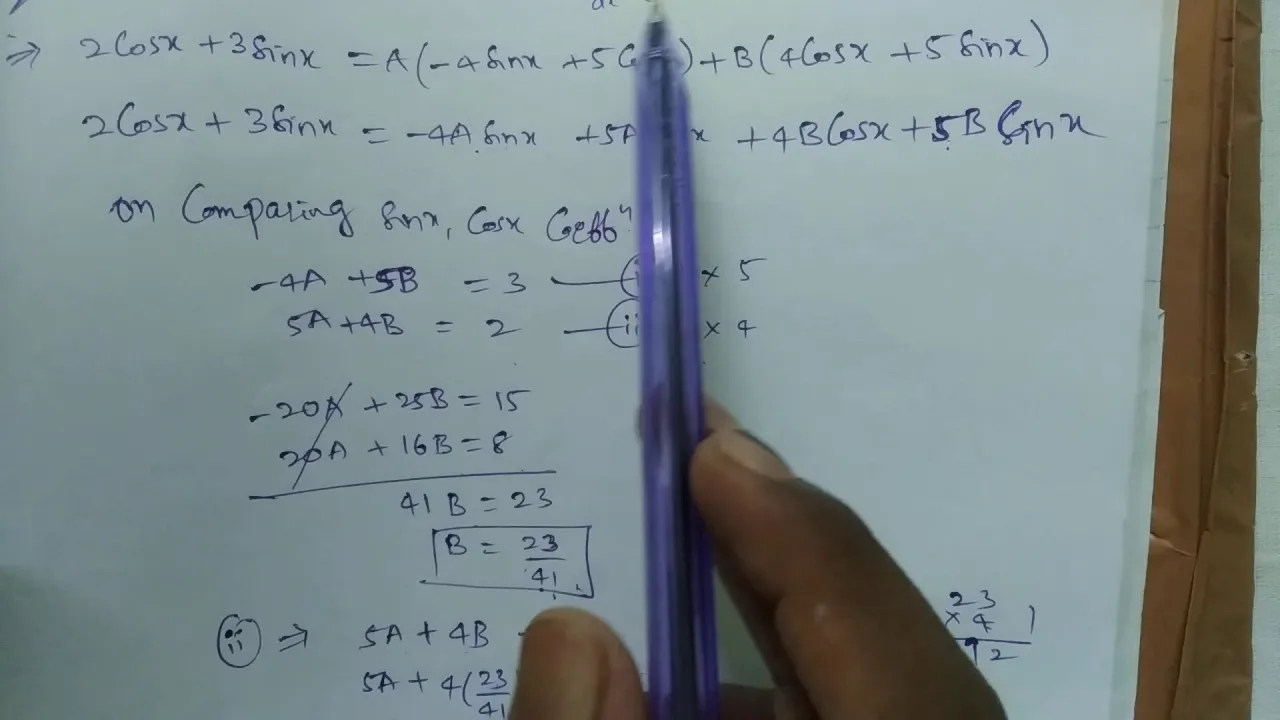 ⇒ 2Cosx + 3Sinx = A(-4Sinx + 5Co ) + B(4Cosx + 5Sinx)
2Cosx + 3Sinx = -4A Sinx + 5A x + 4B Cosx + 5B Sinx
on Comparing Sinx, Cosx Coeffⁿ
-4A + 5B = 3 —— (i × 5
5A + 4B = 2 —— (ii × 4
-20A + 25B = 15
20A + 16B = 8
41 B = 23
B = 23/41
(ii) ⇒ 5A + 4B
5A + 4(23/41
23
× 4
92